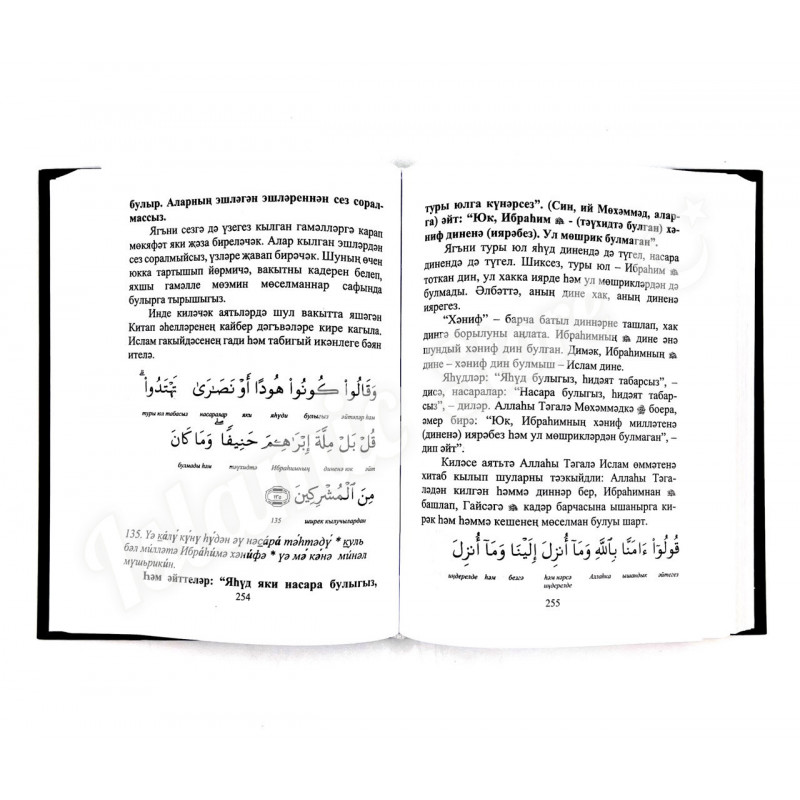 булыр. Аларның эшләгән эшләреннән сез сорал-
массыз.
Ягъни сезгә дә үзегез кылган гамәлләргә карап
мөкяфәт яки җәза биреләчәк. Алар кылган эшләрдән
сез соралмыйсыз, үзләре җавап бирәчәк. Шуның өчен
юкка тартышып йөрмичә, вакытны кадерен белеп,
яхшы гамәлле мөэмин мөселманнар сафында
булырга тырышыгыз.
Инде киләчәк аятьләрдә шул вакытта яшәгән
Китап әһелләренең кайбер дәгъвәләре кире кагыла.
Ислам гакыйдәсенең гади һәм табигый икәнлеге бәян
ителә.
وَقَالُوا۟ كُونُوا۟ هُودًا أَوْ نَصَـٰرَىٰ تَهْتَدُوا۟ ۗ
туры юл табасыз насаралар яки яһүди булыгыз әйтәләр һәм
قُلْ بَلْ مِلَّةَ إِبْرَٰهِـۧمَ حَنِيفًا ۖ وَمَا كَانَ
булмады һәм тәүхидтә Ибраһимның диненә юк әйт
مِنَ ٱلْمُشْرِكِينَ ١٣٥
135 ширек кылучылардан
135. Үә кáлү́ кýнý һýдән әү нәсáрá тәһтәдý * куль
бәл мúлләтә Ибрáһúмә хәнúфә * үә мә́ кáнә мúнәл
мýшьрикúн.
Һәм әйттеләр: “Яһүд яки насара булыгыз,
254
туры юлга күнәрсез”. (Син, ий Мөхәммәд, алар-
га) әйт: “Юк, Ибраһим ﷺ - (тәүхидтә булган) хә-
ниф диненә (иярәбез). Ул мөшрик булмаган”.
Ягъни туры юл яһүд динендә дә түгел, насара
динендә дә түгел. Шиксез, туры юл – Ибраһим ﷺ
тоткан дин, ул хакка иярде һәм ул мөшрикләрдән дә
булмады. Әлбәттә, аның дине хак, аның диненә
иярегез.
“Хәниф” – барча батыл диннәрне ташлап, хак
дингә борылуны аңлата. Ибраһимның ﷺ дине әнә
шундый хәниф дин булган. Димәк, Ибраһимның ﷺ
дине - хәниф дин булмыш – Ислам дине.
Яһүдләр: “Яһүд булыгыз, һидәят табарсыз”, –
дисә, насаралар: “Насара булыгыз, һидәят табар-
сыз”, – диләр. Аллаһы Тәгалә Мөхәммәдкә ﷺ боера,
әмер бирә: “Юк, Ибраһимның хәниф милләтенә
(диненә) иярәбез һәм ул мөшрикләрдән булмаган”, –
дип әйт”.
Киләсе аятьтә Аллаһы Тәгалә Ислам өммәтенә
хитаб кылып шуларны тәэкыйдли: Аллаһы Тәга-
ләдән килгән һәммә диннәр бер, Ибраһимнан ﷺ
башлап, Гайсәгә ﷺ кадәр барчасына ышанырга ки-
рәк һәм һәммә кешенең мөселман булуы шарт.
قُولُوٓا۟ ءَامَنَّا بِٱللَّهِ وَمَآ أُنزِلَ إِلَيْنَا وَمَآ أُنزِلَ
иңдерелде һәм безгә һәм нәрсә иңдерелде Аллаһка ышандык әйтегез
255